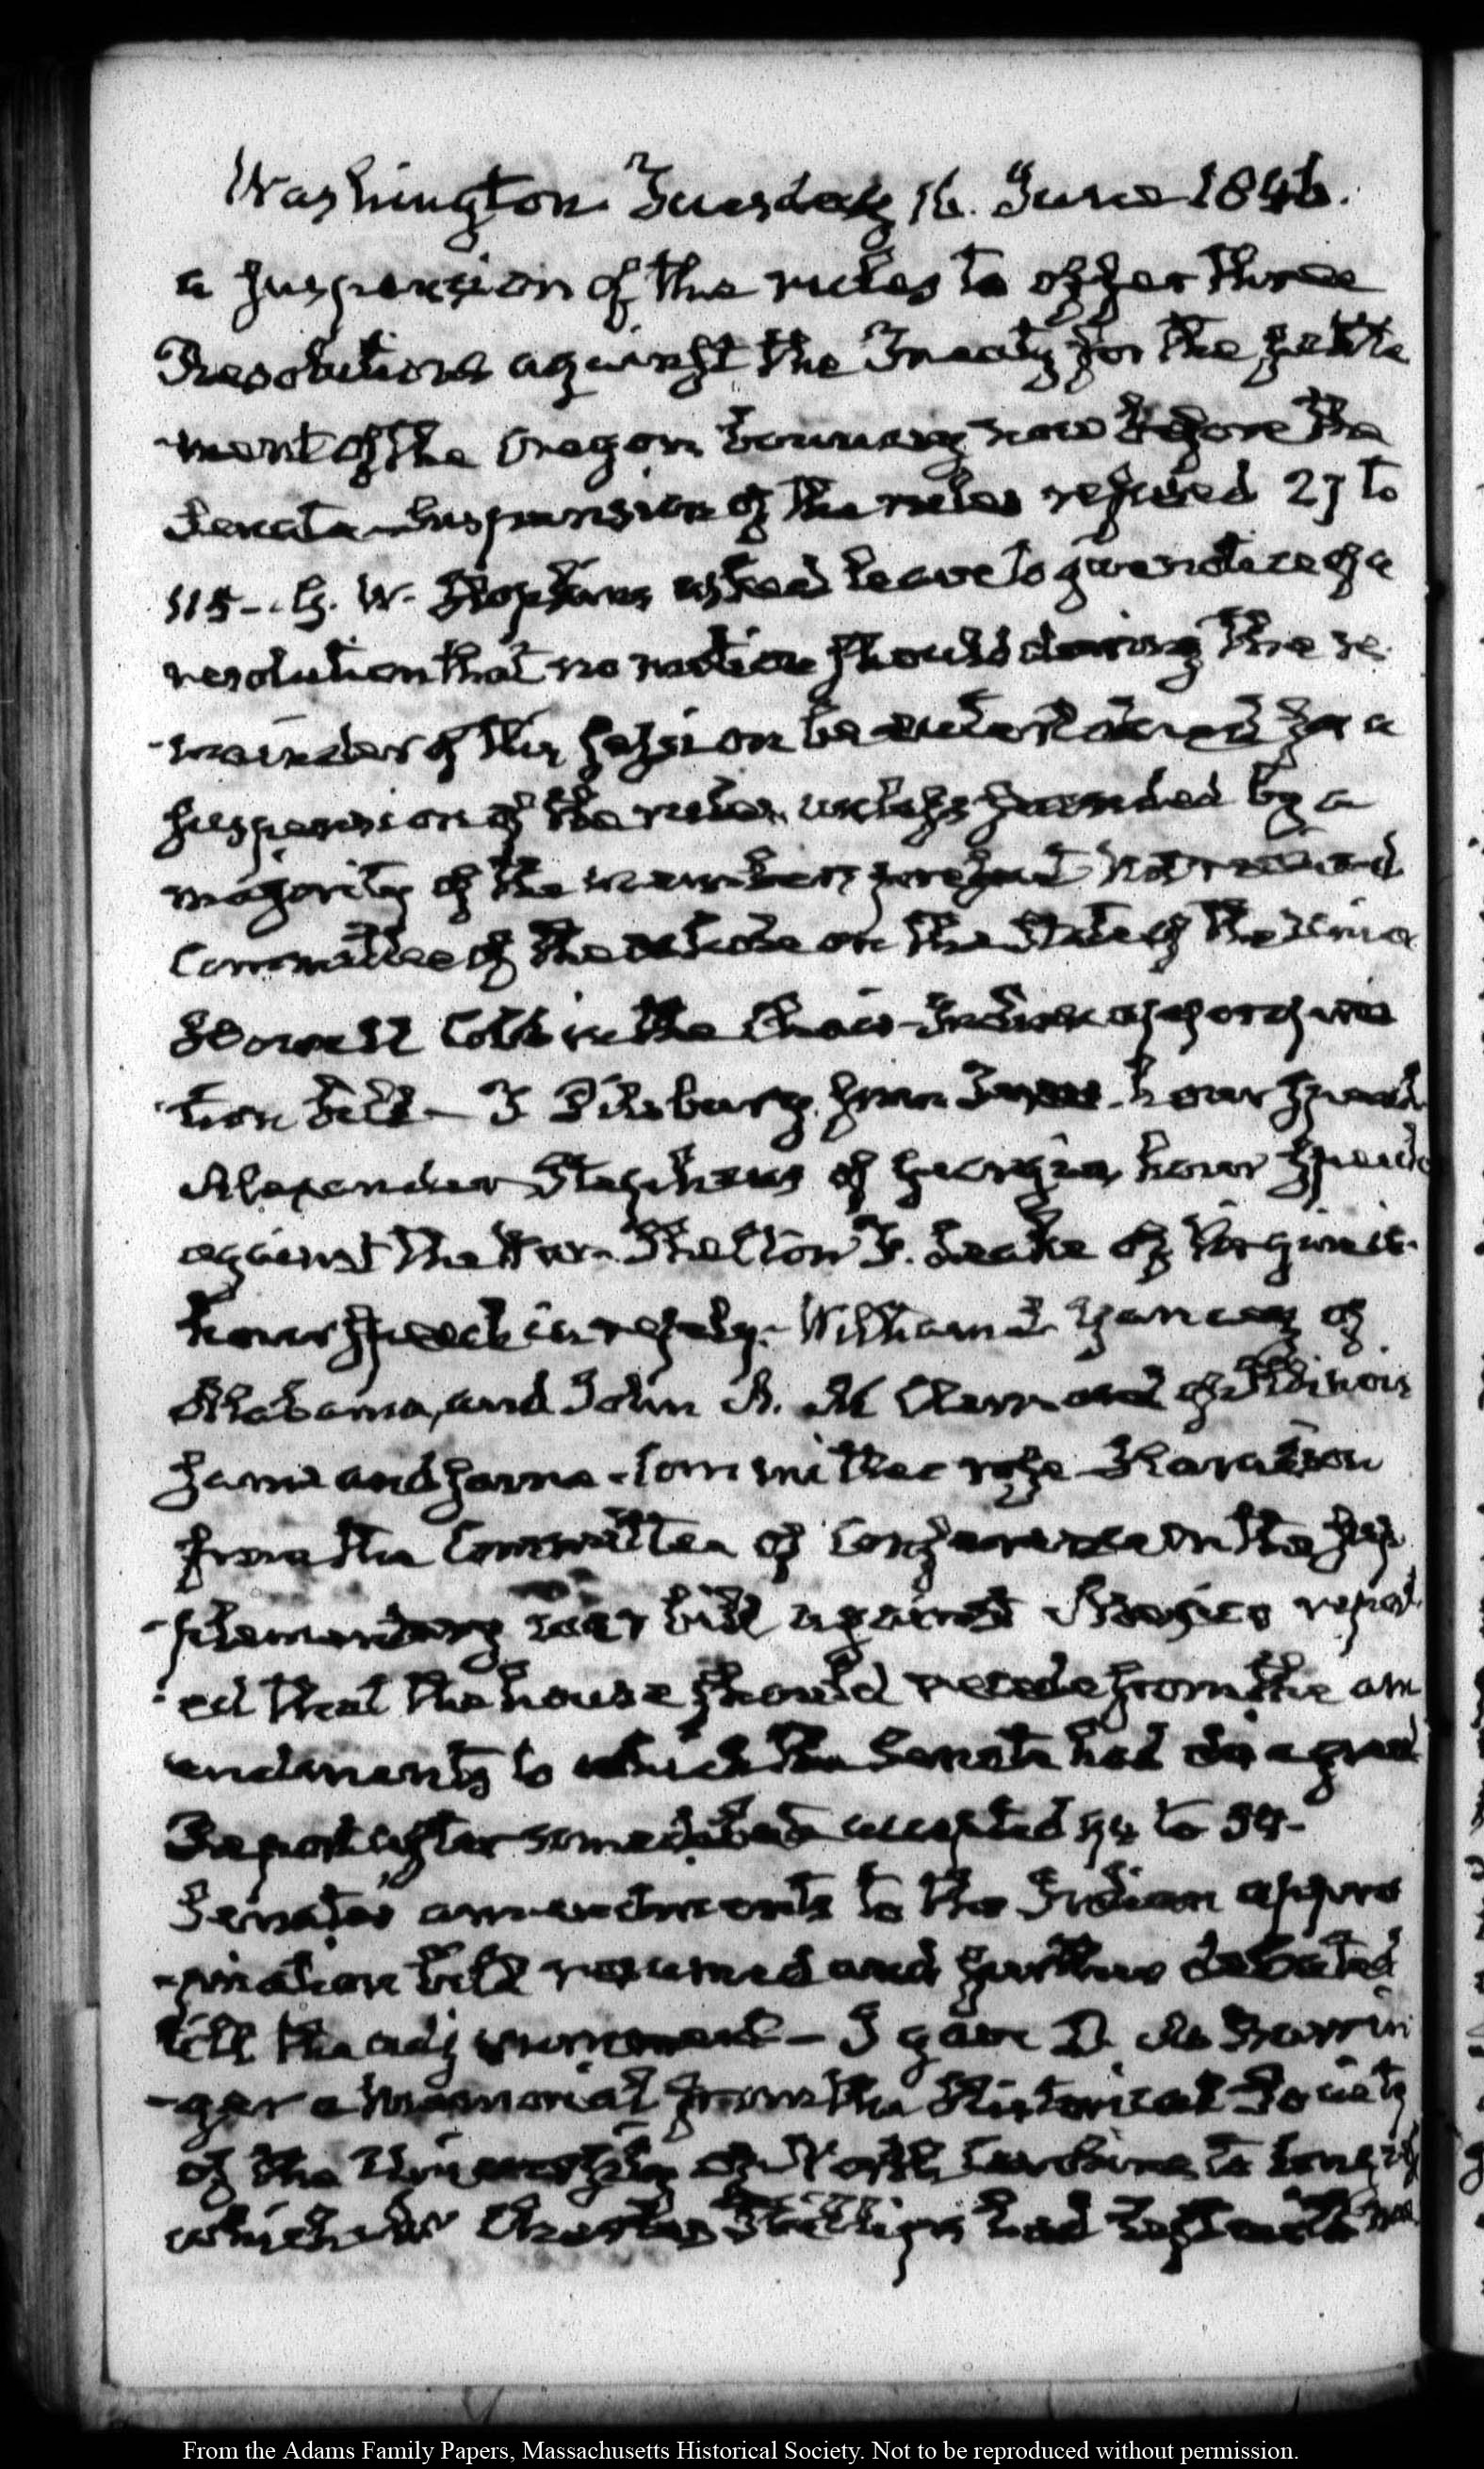 Washington Tuesday 16. June 1846.
a suspension of the rules to offer three
Resolutions against the Treaty for the settle
-ment of the Oregon boundary now before the
Senate – Suspension of the rules refused 27 to
115 – G. W. Hopkins asked leave to give notice of a
resolution that no motion should during the re
-mainder of this session be entertained for a
suspension of the rules unless seconded by a
majority of the members present not received
Committee of the whole on the State of the Union
Howell Cobb in the Chair – Indian appropria
tion bill – T Pilsbury from Texas hour speech
Alexander Stephens of Georgia, hour speech
against the War. Shelton F. Leake of Virginia
hour speech in reply. William L Yancey of
Alabama, and John A. McClernand of Illinois
same and same – Committee rose – Haralson
from the Committee of Conference on the sup
-plementary war bill against Mexico report
-ed that the house should recede from the am
endments to which the Senate had disagreed
Report after some debate accepted to
Senate's amendments to the Indian appro
-priation bill resumed and further debated
till the adjournment – I gave D. M. Barrin
-ger a memorial from the Historical Society
of the University of North Carolina to Congress
which Mr had left with me
From the Adams Family Papers, Massachusetts Historical Society. Not to be reproduced without permission.